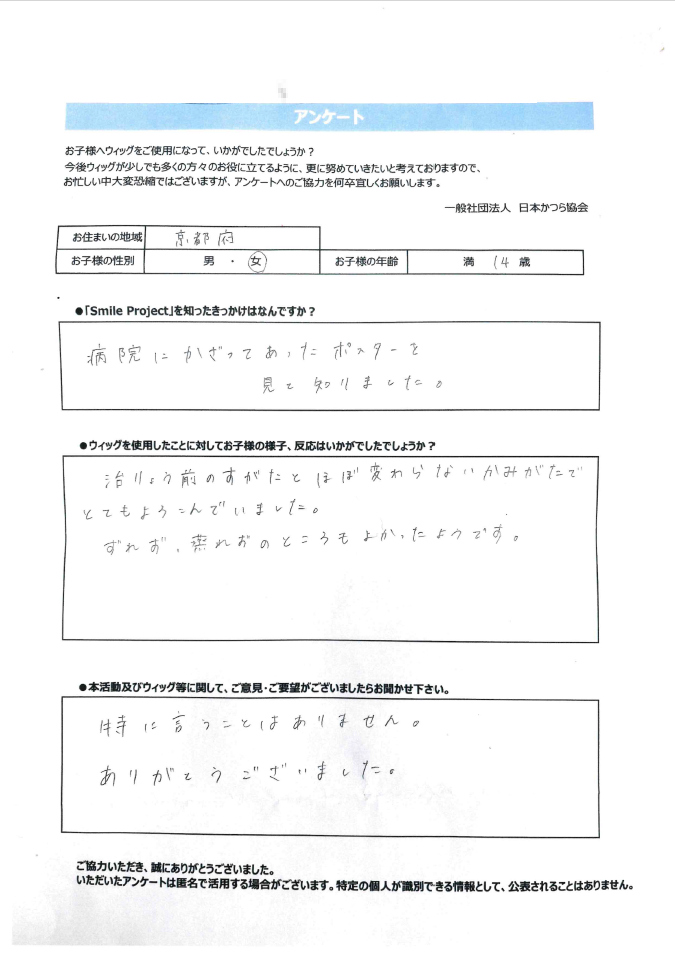 アンケート
お子様へウィッグをご使用になって、いかがでしたでしょうか？
今後ウィッグが少しでも多くの方々のお役に立てるように、更に努めていきたいと考えておりますので、
お忙しい中大変恐縮ではございますが、アンケートへのご協力を何卒宜しくお願いします。
一般社団法人 日本かつら協会
お住まいの地域 京都府
お子様の性別 男 ・ 女 お子様の年齢 満 14 歳
●「Smile Project」を知ったきっかけはなんですか？
病院にかざってあったポスターを
見て知りました。
●ウィッグを使用したことに対してお子様の様子、反応はいかがでしたでしょうか？
治りょう前のすがたとほぼ変わらないかみがたで
とてもよろこんでいました。
ずれず、蒸れずのところもよかったようです。
●本活動及びウィッグ等に関して、ご意見・ご要望がございましたらお聞かせ下さい。
特に言うことはありません。
ありがとうございました。
ご協力いただき、誠にありがとうございました。
いただいたアンケートは匿名で活用する場合がございます。特定の個人が識別できる情報として、公表されることはありません。